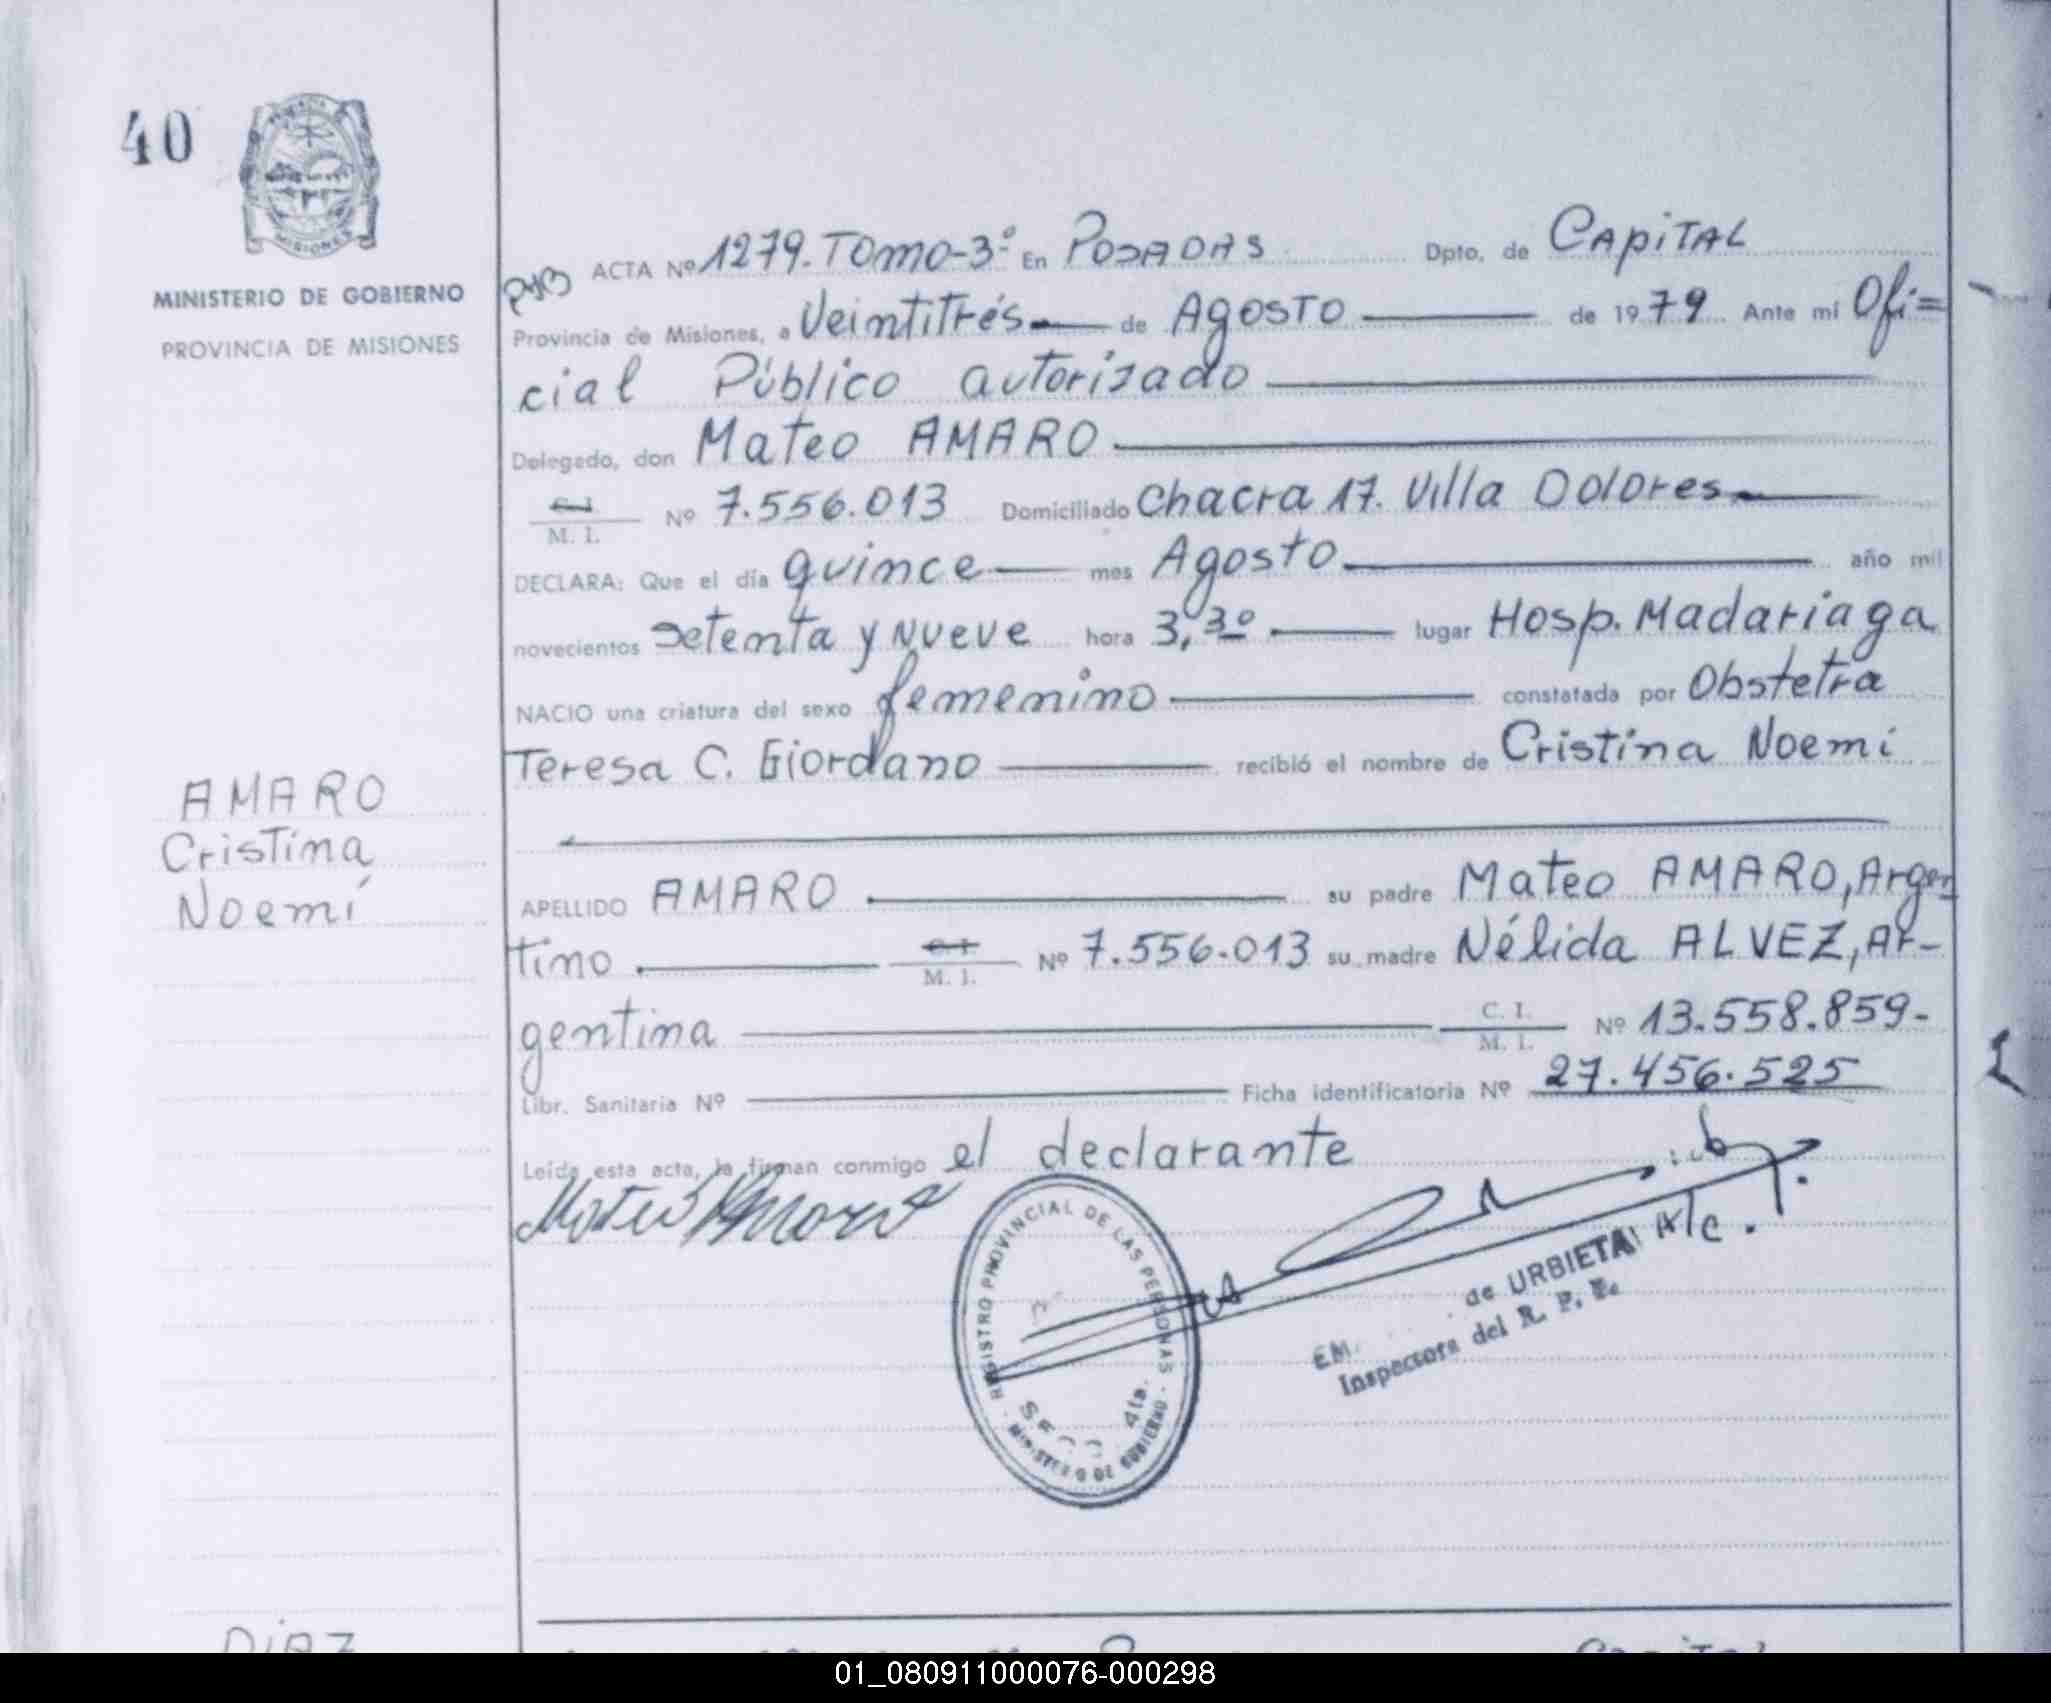 40
MINISTERIO DE GOBIERNO
PROVINCIA DE MISIONES
AMARO
Cristina
Noemí
ACTA Nº 1279. TOMO-3º En POSADAS Dpto. de CAPITAL
Provincia de Misiones, a Veintitrés de Agosto de 1979 Ante mi Ofi=
cial Público autorizado
Delegado, don Mateo AMARO
C. I.
M. I. Nº 7.556.013 Domiciliado Chacra 17. Villa Dolores
DECLARA: Que el día quince mes Agosto año mil
novecientos setenta y nueve hora 3,30 lugar Hosp. Madariaga
NACIO una criatura del sexo femenino constatada por Obstetra
Teresa C. Giordano recibió el nombre de Cristina Noemí
APELLIDO AMARO su padre Mateo AMARO, Argen
tino C. I. M. I. Nº 7.556.013 su madre Nélida ALVEZ, Ar-
gentina C. I. M. I. Nº 13.558.859-
Libr. Sanitaria Nº Ficha identificatoria Nº 27.456.525
Leída esta acta, la firman conmigo el declarante
Mateo Amaro
REGISTRO PROVINCIAL DE LAS PERSONAS
MINISTERIO DE GOBIERNO
4ta.
de URBIETA A/c.
Inspectora del R. P. P.
DIAZ
01_080911000076-000298